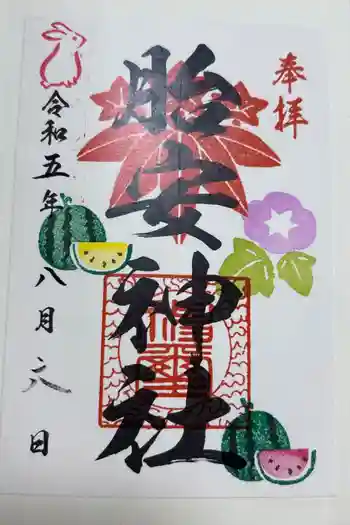 奉拝
胎安神社
令和五年八月六日